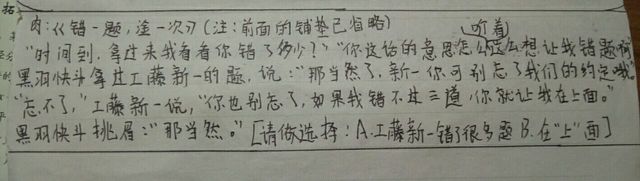 拓
肉:《错一题,塗一次》(注:前面的铺垫已省略)
听着
"时间到,拿过来我看看你错了多少?""你这话的意思怎么这么想让我错题啊
黑羽快斗拿过工藤新一的题,说:"那当然了,新一你可别忘了我们的约定哦"
"忘不了,"工藤新一说,"你也别忘了,如果我错不过三道,你就让我在上面。"
黑羽快斗挑眉:"那当然。"[请做选择:A.工藤新一错了很多题 B.在"上"面]